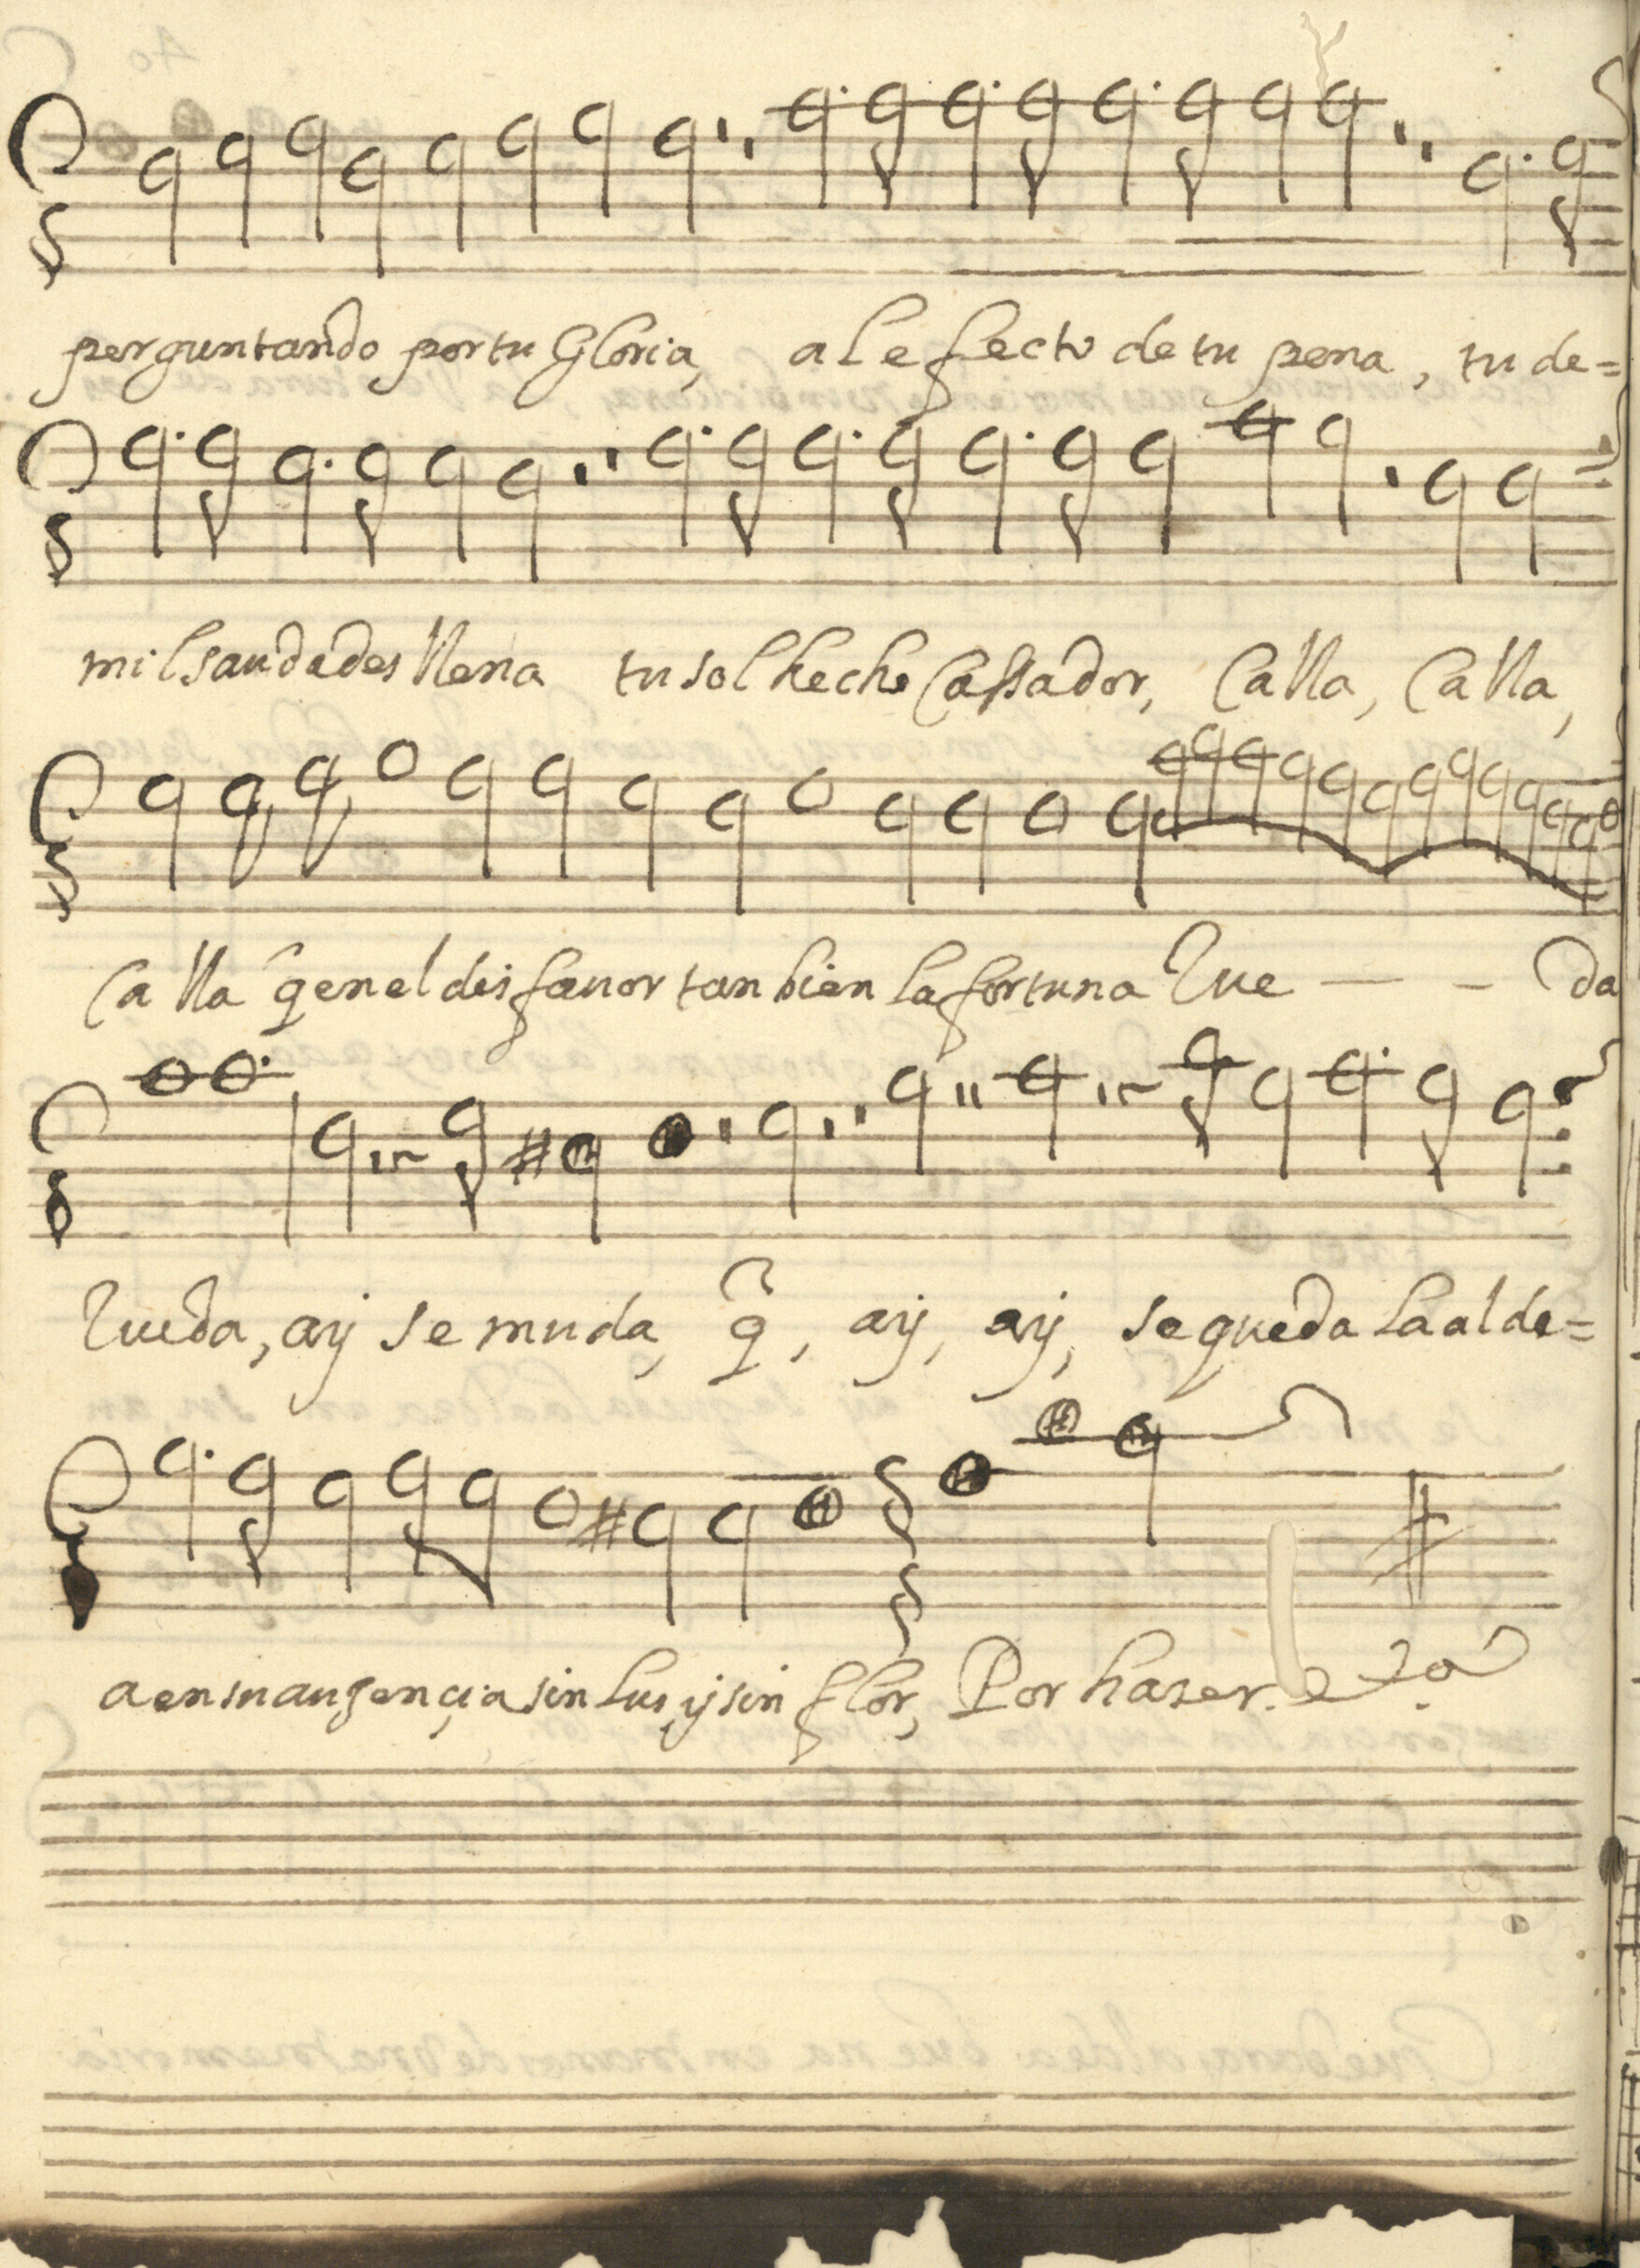 perguntando por tu Gloria, al efecto de tu pena, tu de=
mil saudades llena tu sol hecho Cassador, Calla, Calla,
Calla q̃ en el disfauor tanbien la fortuna Rue - - da
Rueda, ay se muda, q̃, ay, ay, se queda la alde=
a en su ausençia sin lus, y sin flor, Por haser.